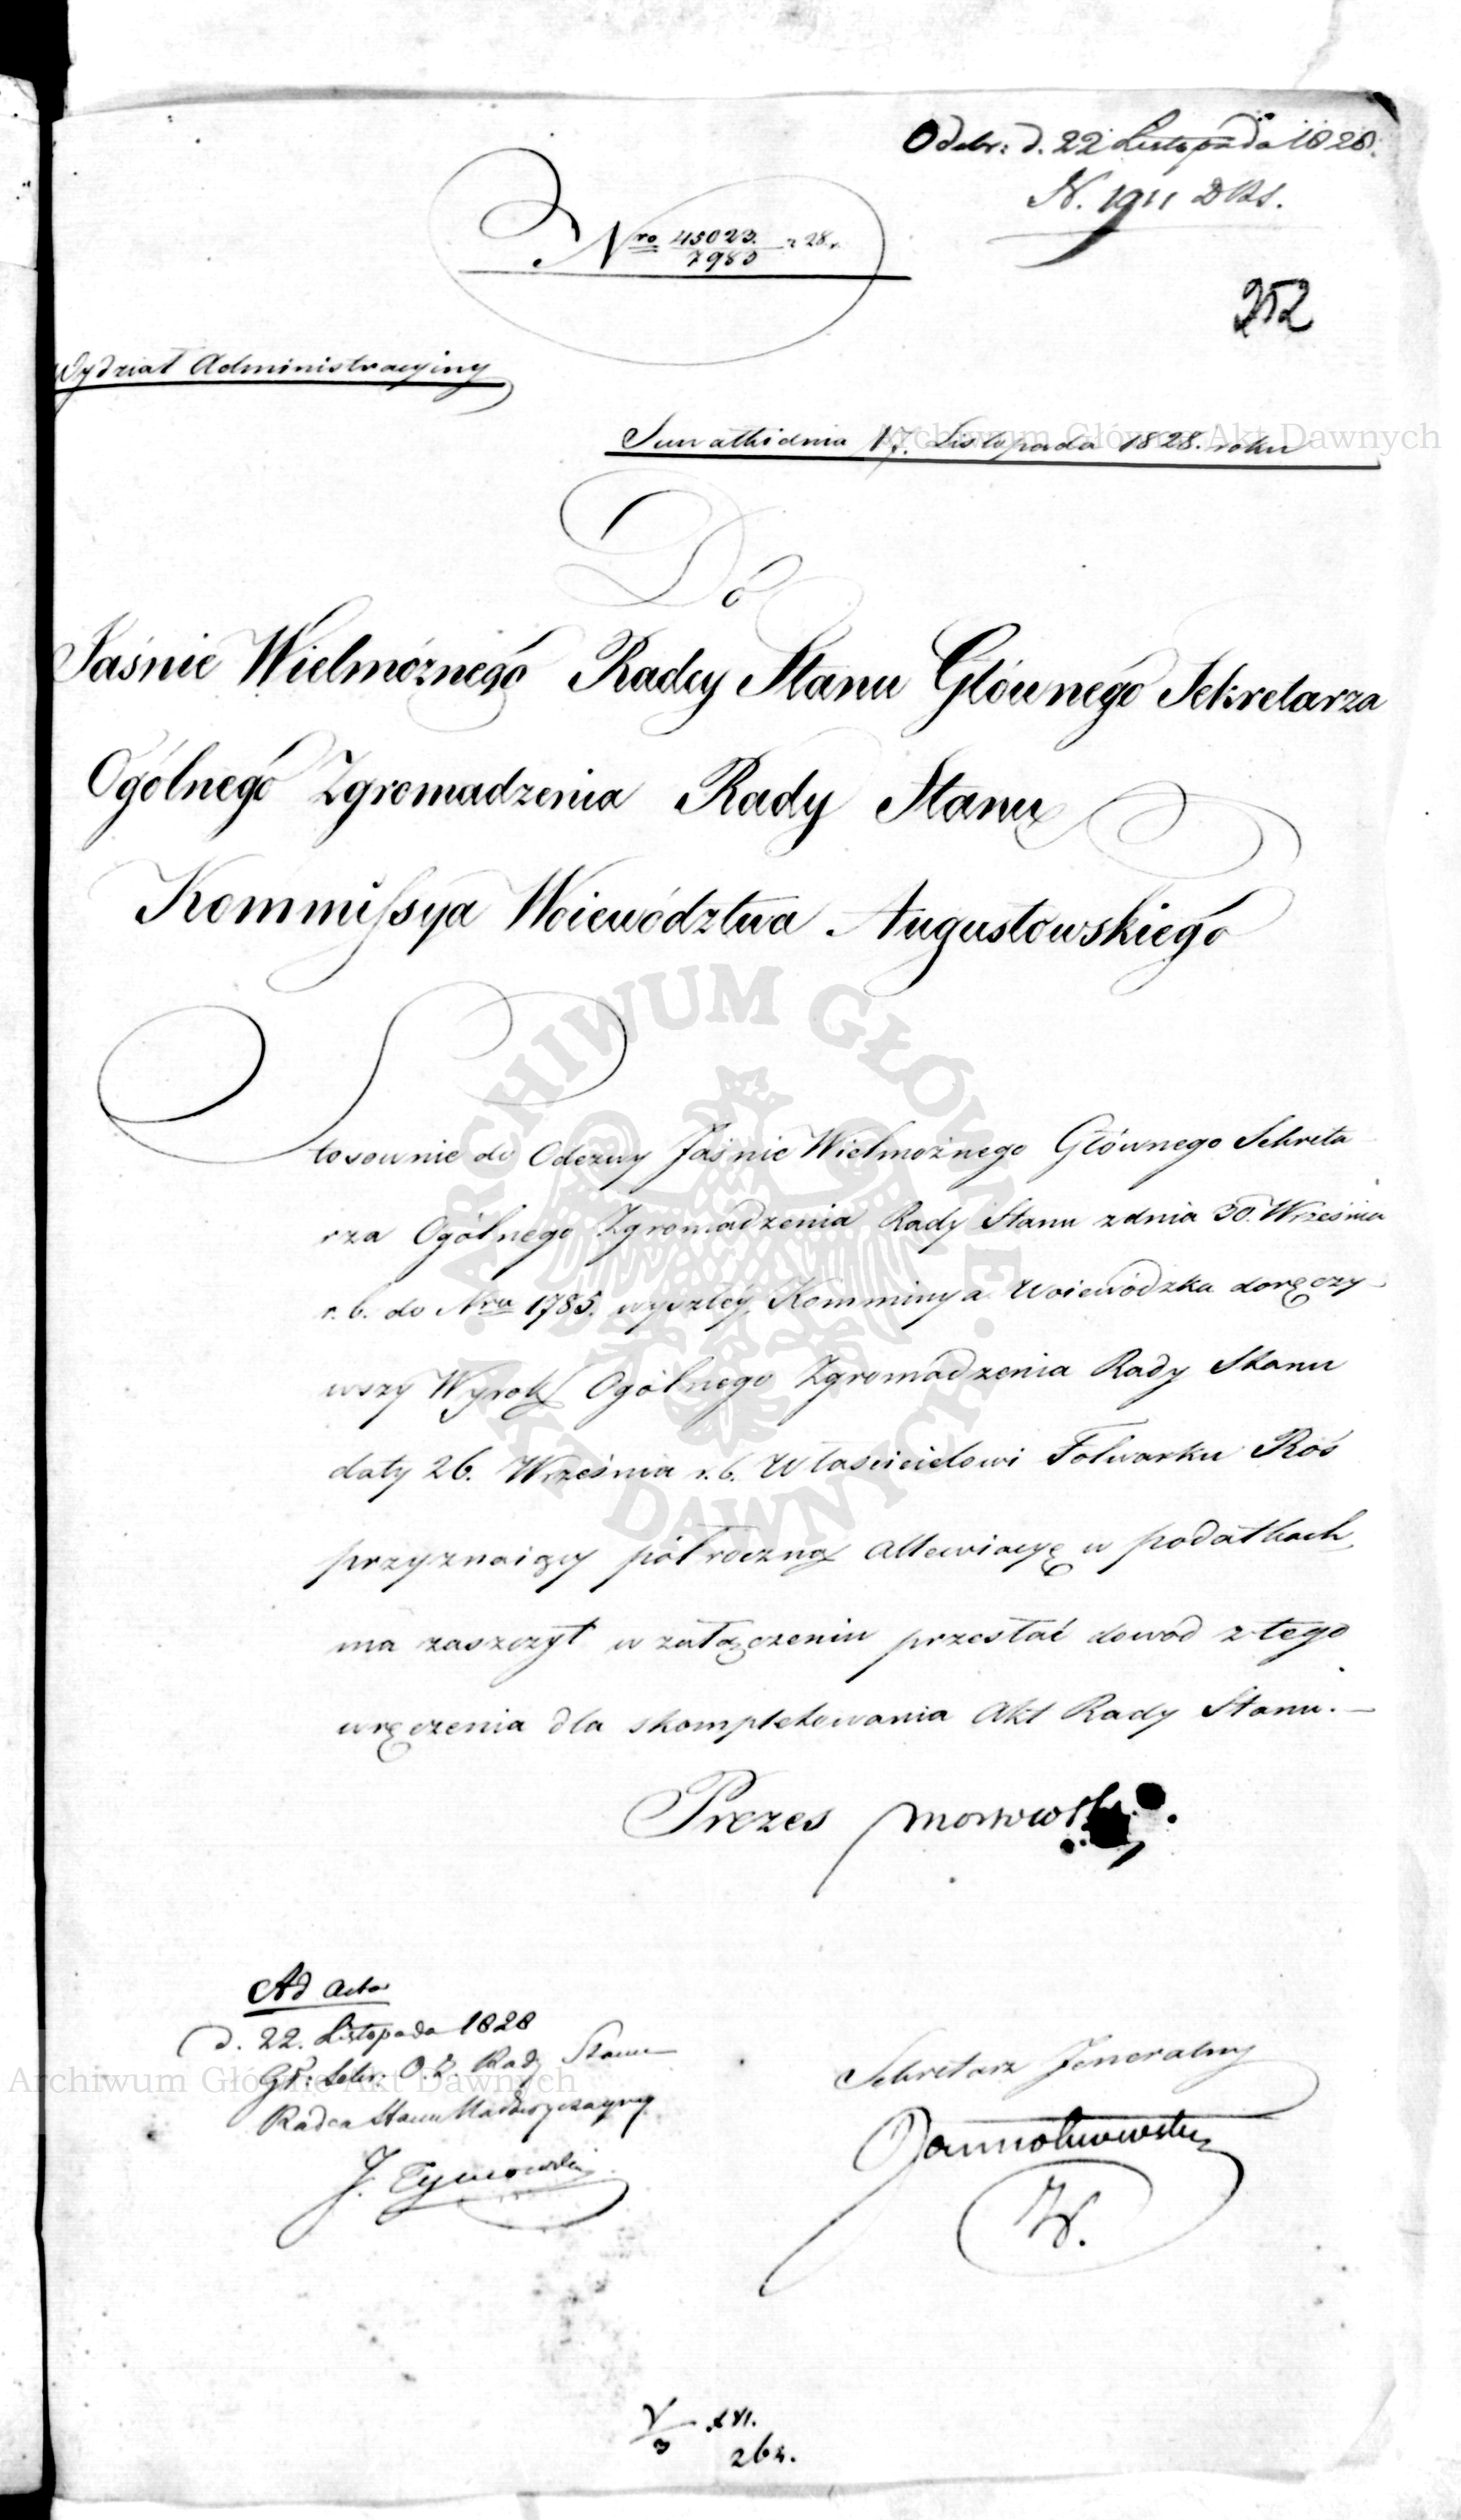 Odebr: d. 22 Listopada 1828.
N. 1911 DRS.
Nro 45023./7983 z 28 r.
252
Wydział Administracyiny
Suwałki dnia 17. Listopada 1828. roku
Do
Jaśnie Wielmożnego Radcy Stanu Głównego Sekretarza
Ogólnego Zgromadzenia Rady Stanu
Kommissya Woiewództwa Augustowskiego
Stosownie do Odezwy Jaśnie Wielmożnego Głównego Sekreta
rza Ogólnego Zgromadzenia Rady Stanu z dnia 30. Września
r. b. do Nru 1785. wyszłéy, Kommissya Woiewódzka doręczy-
wszy Wyrok Ogólnego Zgromadzenia Rady Stanu
daty 26. Września r. b. Właścicielowi Folwarku Roś
przyznaiący półroczną allewiacyę w podatkach,
ma zaszczyt w załączeniu przesłać dowód z tego
wręczenia dla skompletowania Akt Rady Stanu. —
Prezes
Ad acta
d. 22. Listopada 1828
Gł: Sekr: O. Z. Rady Stanu
Radca Stanu Nadzwyczayny
J. Tymowski
Sekretarz Jeneralny
V/3 XVI.
264.
Archiwum Główne Akt Dawnych
ARCHIWUM GŁÓWNE AKT DAWNYCH
Archiwum Główne Akt Dawnych